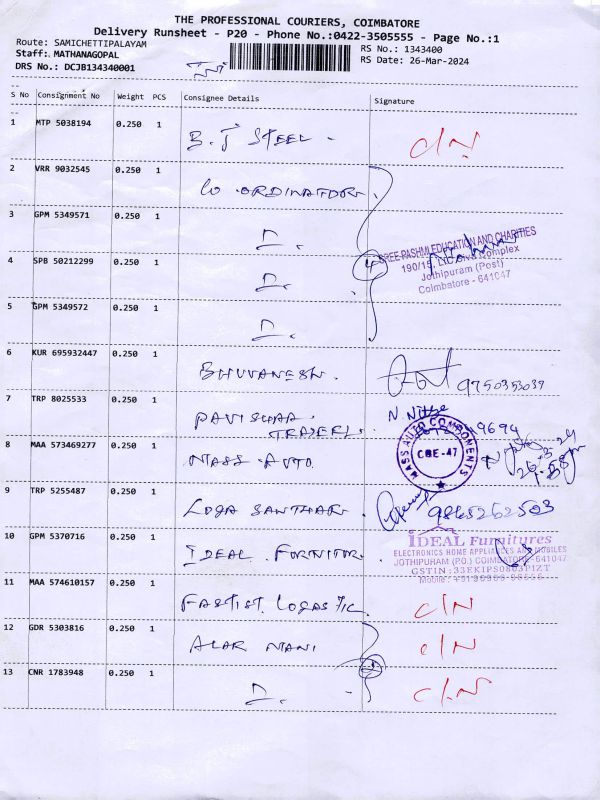 THE PROFESSIONAL COURIERS, COIMBATORE
Delivery Runsheet - P20 - Phone No.:0422-3505555 - Page No.:1
Route: SAMICHETTIPALAYAM
Staff: MATHANAGOPAL
DRS No.: DCJB134340001
RS No.: 1343400
RS Date: 26-Mar-2024
S No Consignment No Weight PCS Consignee Details Signature
1 MTP 5038194 0.250 1 B.J STEEL - C/N
2 VRR 9032545 0.250 1 CO.ORDINATOR
3 GPM 5349571 0.250 1 D.
4 SPB 50212299 0.250 1 D. 4
SREE PASHMI EDUCATION AND CHARITIES
190/15, Complex
Jothipuram (Post)
Coimbatore - 641047
5 GPM 5349572 0.250 1 D.
6 KUR 695932447 0.250 1 BHUVANESH. 9750353039
7 TRP 8025533 0.250 1 N. Nithya
8 MAA 573469277 0.250 1 MASS AUTO
MASS AUTO COMPONENTS
CBE-47
9 TRP 5255487 0.250 1 LOGA 9865262503
10 GPM 5370716 0.250 1 IDEAL FURNITUR.
IDEAL Furnitures
ELECTRONICS HOME APPLIANCES AND MOBILES
JOTHIPURAM (P.O.) COIMBATORE-641047
GSTIN:33EKIPS0803P1ZT
11 MAA 574610157 0.250 1 C/N
12 GDR 5303816 0.250 1 ALAR MANI C/N
13 CNR 1783948 0.250 1 D. C/N